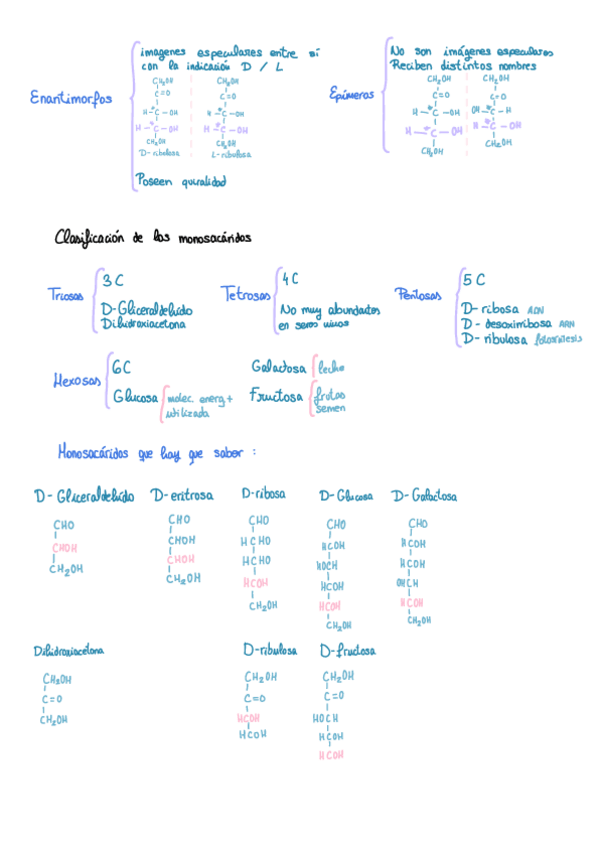 imagenes especulares entre sí
con la indicación D / L
Enantimorfos
CH₂OH CH₂OH
C=O C=O
H-C-OH H-C-OH
H-C-OH H-C-OH
CH₂OH CH₂OH
D-ribulosa L-ribulosa
Poseen quiralidad
No son imágenes especulares
Reciben distintos nombres
Epímeros
CH₂OH CH₂OH
C=O C=O
H-C-OH OH-C-H
H-C-OH H-C-OH
CH₂OH CH₂OH
Clasificación de los monosacáridos
Triosas
3C
D-Gliceraldehído
Dihidroxiacetona
Tetrosas
4C
No muy abundantes
en seres vivos
Pentosas
5C
D-ribosa ADN
D-desoxirribosa ARN
D-ribulosa fotosíntesis
Hexosas
6C
Glucosa molec. energ +
utilizada
Galactosa leche
Fructosa frutas
semen
Monosacáridos que hay que saber :
D-Gliceraldehído D-eritrosa D-ribosa D-Glucosa D-Galactosa
CHO
CHOH
CH₂OH
CHO
CHOH
CHOH
CH₂OH
CHO
HCHO
HCHO
HCOH
CH₂OH
CHO
HCOH
HOCH
HCOH
HCOH
CH₂OH
CHO
HCOH
HCOH
OHCH
HCOH
CH₂OH
Dihidroxiacetona D-ribulosa D-fructosa
CH₂OH
C=O
CH₂OH
CH₂OH
C=O
HCOH
HCOH
CH₂OH
C=O
HOCH
HCOH
HCOH